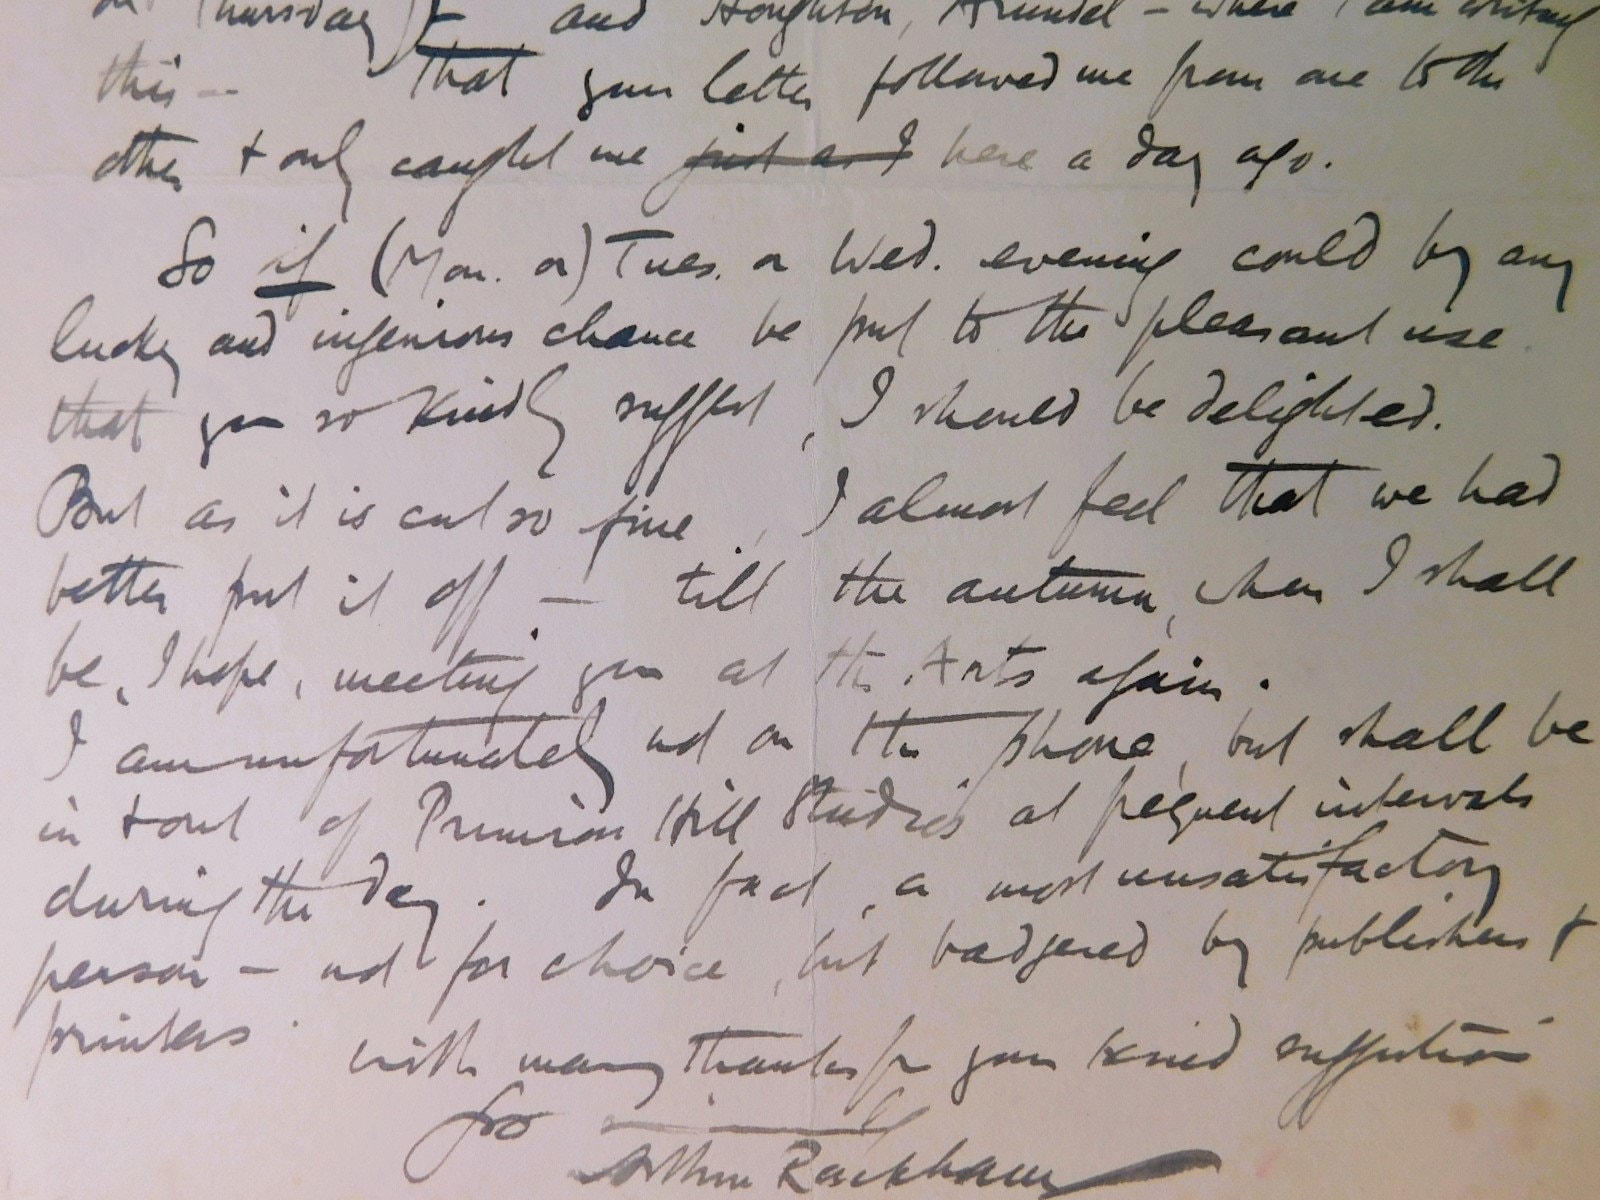 on Thursday) & and Houghton, Arundel – where I am writing
this – that your letter followed me from one to the
other & only caught me just as I here a day ago.
So if (Mon. or) Tues. or Wed. evening could by any
lucky and ingenious chance be put to the pleasant use
that you so kindly suggest, I should be delighted.
But as it is cut so fine, I almost feel that we had
better put it off – till the autumn, when I shall
be, I hope, meeting you at the Arts again.
I am unfortunately not on the phone, but shall be
in & out of Primrose Hill Studios at frequent intervals
during the day. In fact, a most unsatisfactory
person – not for choice, but badgered by publishers &
printers.
with many thanks for your kind suggestion
Arthur Rackham